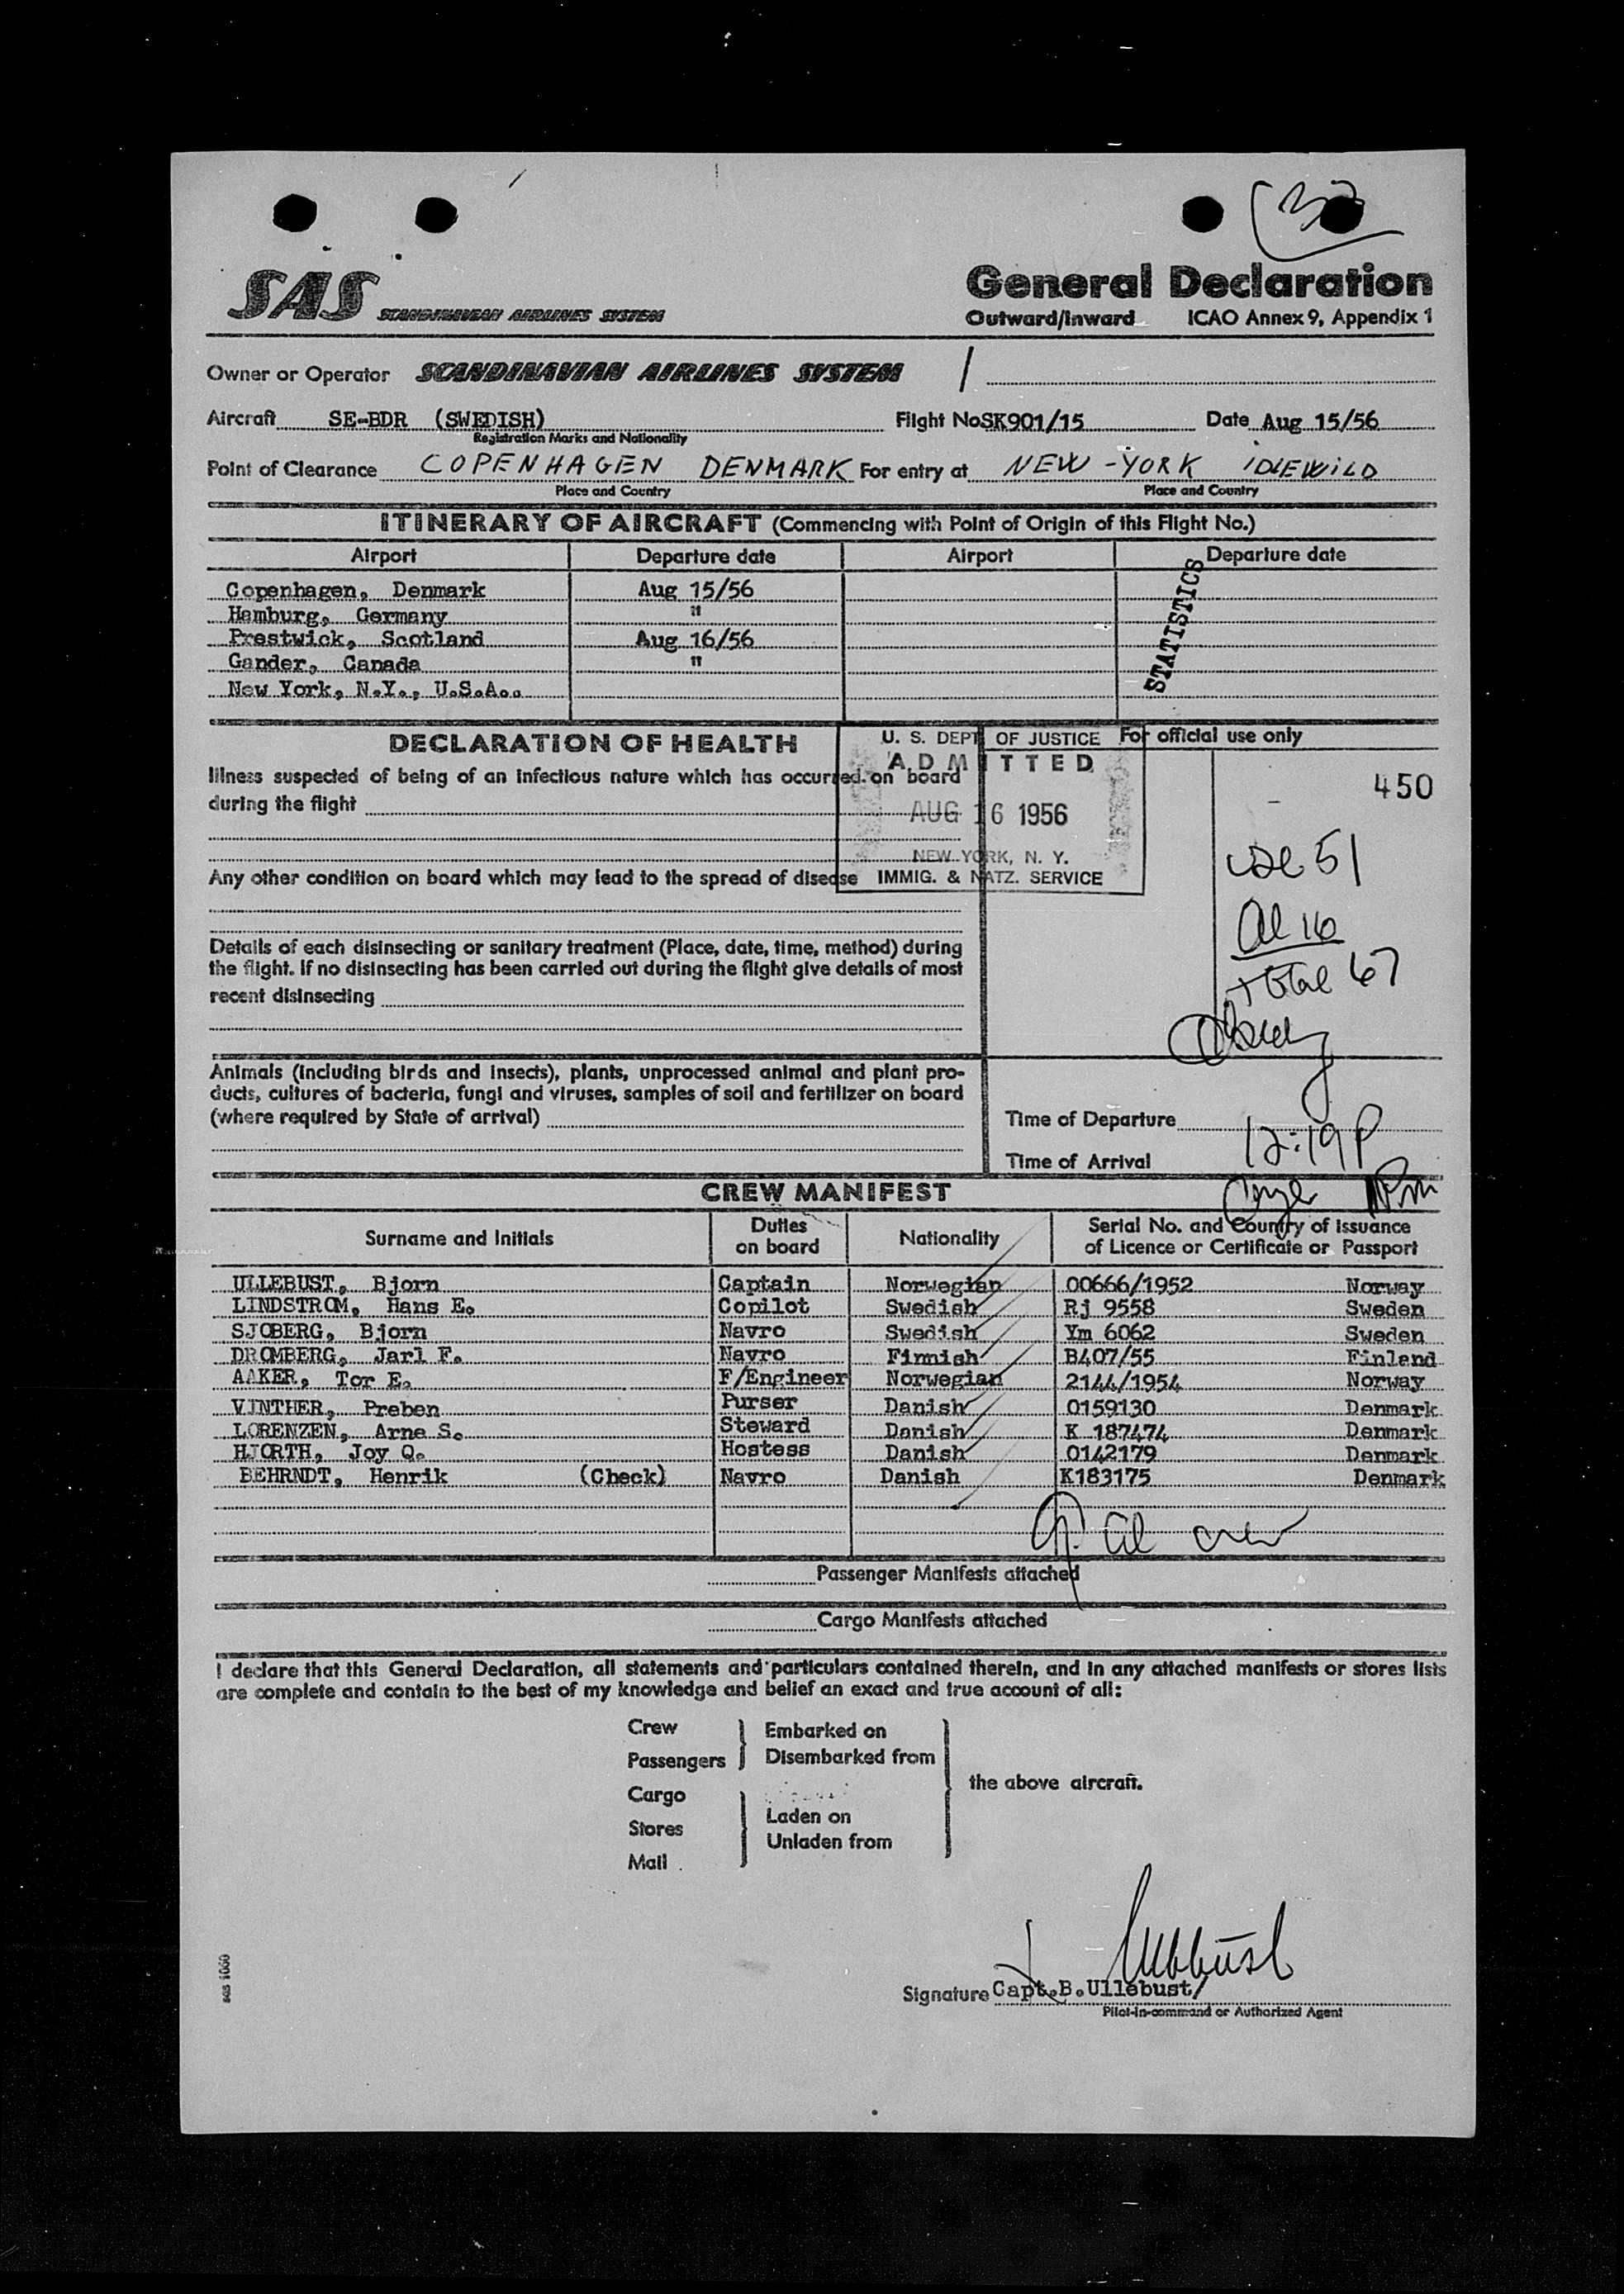 SAS SCANDINAVIAN AIRLINES SYSTEM
General Declaration
Outward/Inward ICAO Annex 9, Appendix 1
Owner or Operator SCANDINAVIAN AIRLINES SYSTEM /
Aircraft SE-BDR (SWEDISH) Flight No SK901/15 Date Aug 15/56
Registration Marks and Nationality
Point of Clearance COPENHAGEN DENMARK For entry at NEW-YORK IDLEWILD
Place and Country Place and Country
ITINERARY OF AIRCRAFT (Commencing with Point of Origin of this Flight No.)
Airport Departure date Airport Departure date
Copenhagen, Denmark Aug 15/56
Hamburg, Germany "
Prestwick, Scotland Aug 16/56
Gander, Canada "
New York, N.Y., U.S.A..
STATISTICS
DECLARATION OF HEALTH
Illness suspected of being of an infectious nature which has occurred on board
during the flight
Any other condition on board which may lead to the spread of disease
Details of each disinsecting or sanitary treatment (Place, date, time, method) during
the flight. If no disinsecting has been carried out during the flight give details of most
recent disinsecting
U. S. DEPT OF JUSTICE
ADMITTED
AUG 16 1956
NEW YORK, N. Y.
IMMIG. & NATZ. SERVICE
For official use only
450
51
al 16
total 67
Animals (including birds and insects), plants, unprocessed animal and plant pro-
ducts, cultures of bacteria, fungi and viruses, samples of soil and fertilizer on board
(where required by State of arrival)
Time of Departure
Time of Arrival 12:19 P
CREW MANIFEST
Surname and Initials Duties on board Nationality Serial No. and Country of Issuance of Licence or Certificate or Passport
ULLEBUST, Bjorn Captain Norwegian 00666/1952 Norway
LINDSTROM, Hans E. Copilot Swedish Rj 9558 Sweden
SJOBERG, Bjorn Navro Swedish Ym 6062 Sweden
DROMBERG, Jarl F. Navro Finnish B407/55 Finland
AAKER, Tor E. F/Engineer Norwegian 2144/1954 Norway
VINTHER, Preben Purser Danish 0159130 Denmark
LORENZEN, Arne S. Steward Danish K 187474 Denmark
HJORTH, Joy Q. Hostess Danish 0142179 Denmark
BEHRNDT, Henrik (Check) Navro Danish K183175 Denmark
crew
Passenger Manifests attached
Cargo Manifests attached
I declare that this General Declaration, all statements and particulars contained therein, and in any attached manifests or stores lists
are complete and contain to the best of my knowledge and belief an exact and true account of all:
Crew
Passengers
Embarked on
Disembarked from
Cargo
Stores
Mail
Laden on
Unladen from
the above aircraft.
Signature Capt. B. Ullebust/
Pilot-in-command or Authorized Agent